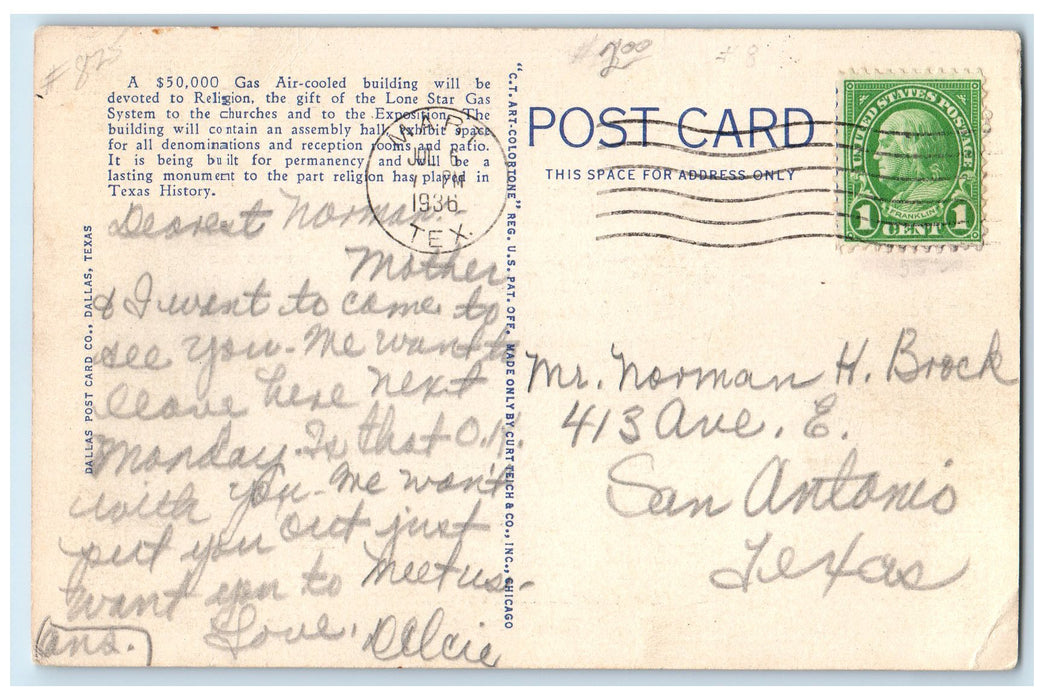 # 825
# 200
# 8
A $50,000 Gas Air-cooled building will be
devoted to Religion, the gift of the Lone Star Gas
System to the churches and to the Exposition. The
building will contain an assembly hall, exhibit space
for all denominations and reception rooms and patio.
It is being built for permanency and will be a
lasting monument to the part religion has played in
Texas History.
JUL 6
PM
1936
TEX.
POST CARD
THIS SPACE FOR ADDRESS ONLY
UNITED STATES POSTAGE
FRANKLIN
1 CENT 1
DALLAS POST CARD CO., DALLAS, TEXAS
"C.T. ART-COLORTONE" REG. U.S. PAT. OFF. MADE ONLY BY CURT TEICH & CO., INC., CHICAGO
Dearest Norman-
Mother
& I want to come to
see you - We want to
leave here next
Monday. Is that O.K.
with you - We won't
put you out just
want you to meet us -
Love,
ans.
Mr. Norman H. Brock
413 Ave. E.
San Antonio
Texas